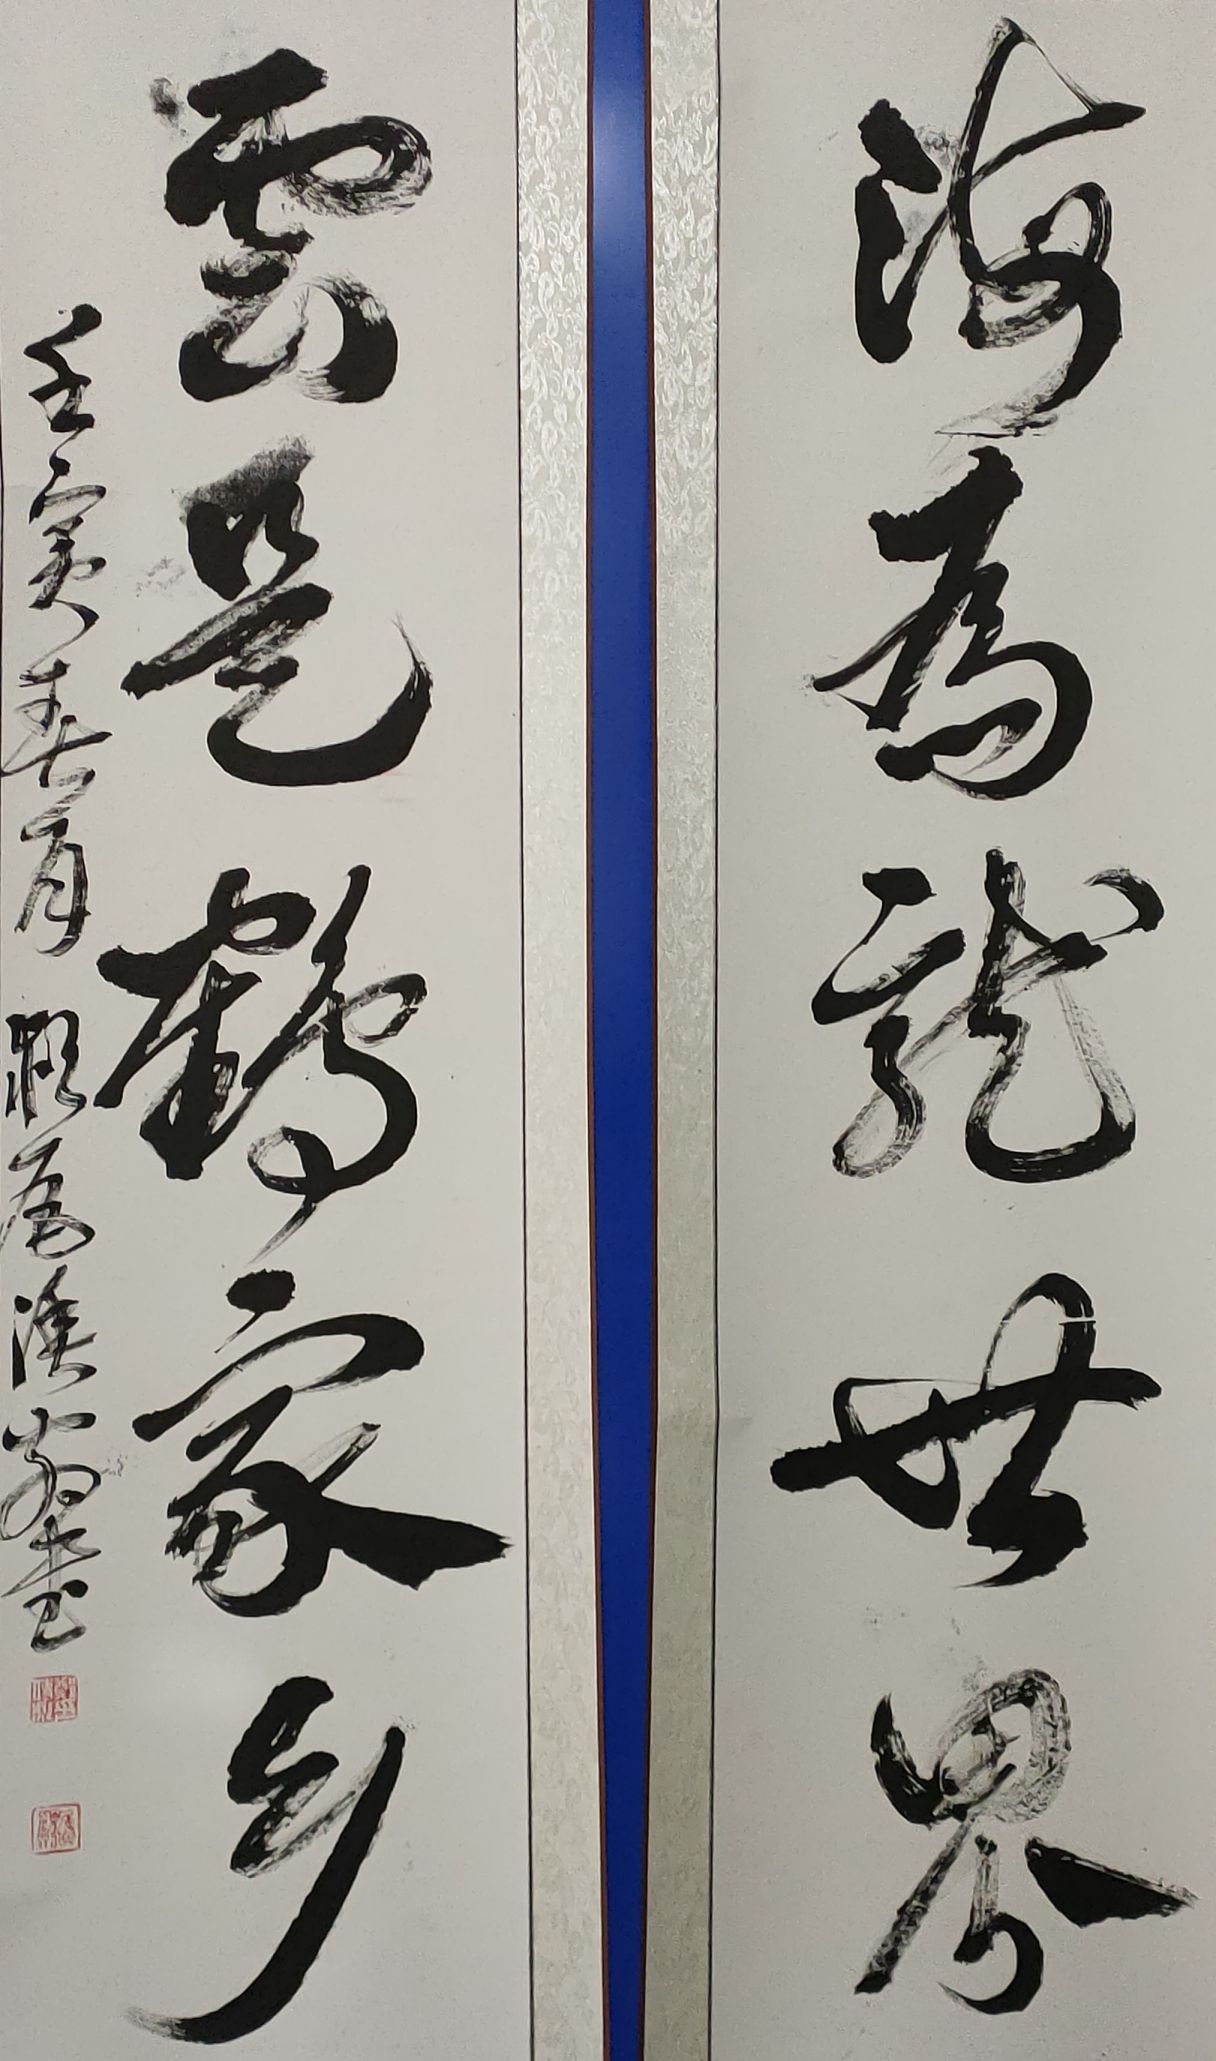 海為龍世界
雲是鶴家乡
壬寅春月